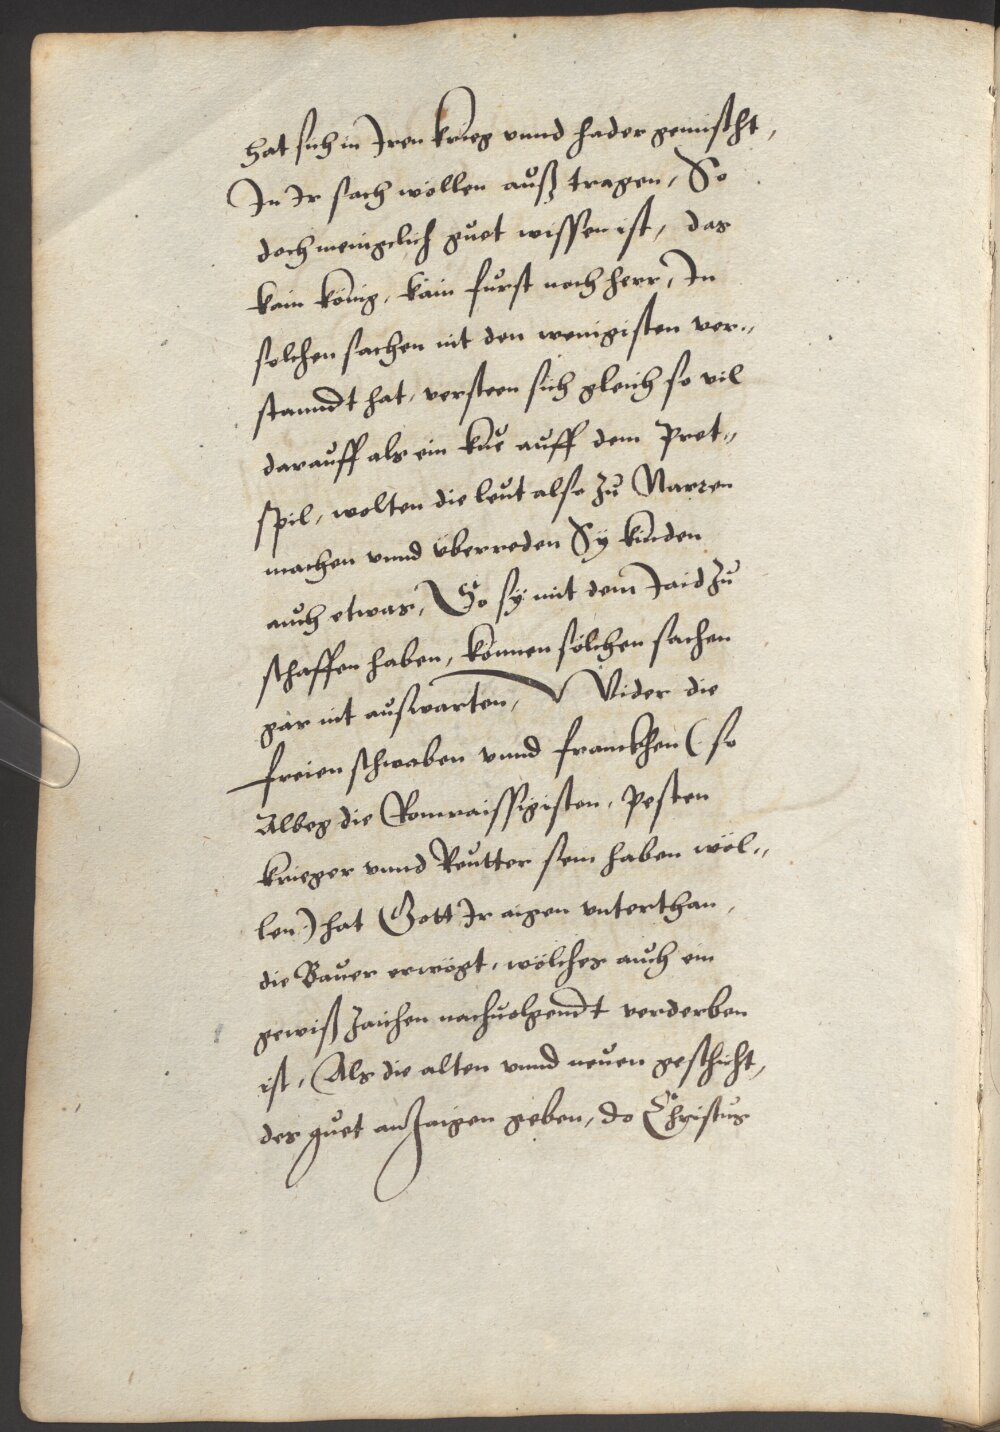 hat sich in Iren krieg vnnd hader gemischt,
In Ir sach wöllen auß tragen, So
doch menigclich guet wissen ist, das
kain könig, kain fürst noch herr, In
solchen sachen nit den wenigisten ver„
stanndt hat, versteen sich gleich so vil
darauff als ein kue auff dem Pret„
spil, wolten die leut also zu Narren
machen vnnd überreden Sy kinden
auch etwas, So sy mit dem Jaid zu
schaffen haben, können sölchen sachen
gar nit auswarten, Wider die
freien schwaben vnnd franckhen (so
Albeg die Romraissigisten, Pesten
krieger vnnd Reutter sein haben wöl„
len) hat Gott Ir aigen vnterthan,
die Baurr erwögt, wölches auch ein
gewiß zaichen nachuolgendt verderben
ist, Als die alten vnnd neuen geschicht,
des guet anzaigen geben, do Christus